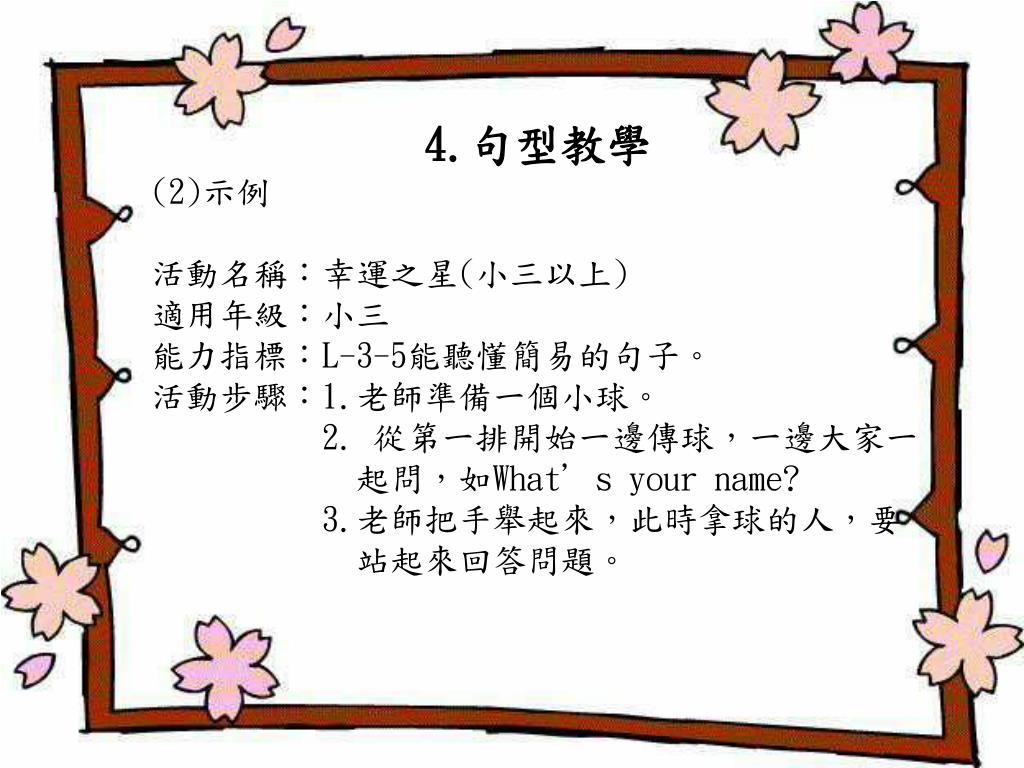 4.句型教學
(2)示例
活動名稱：幸運之星(小三以上)
適用年級：小三
能力指標：L-3-5能聽懂簡易的句子。
活動步驟：1.老師準備一個小球。
2. 從第一排開始一邊傳球，一邊大家一
起問，如What’s your name?
3.老師把手舉起來，此時拿球的人，要
站起來回答問題。